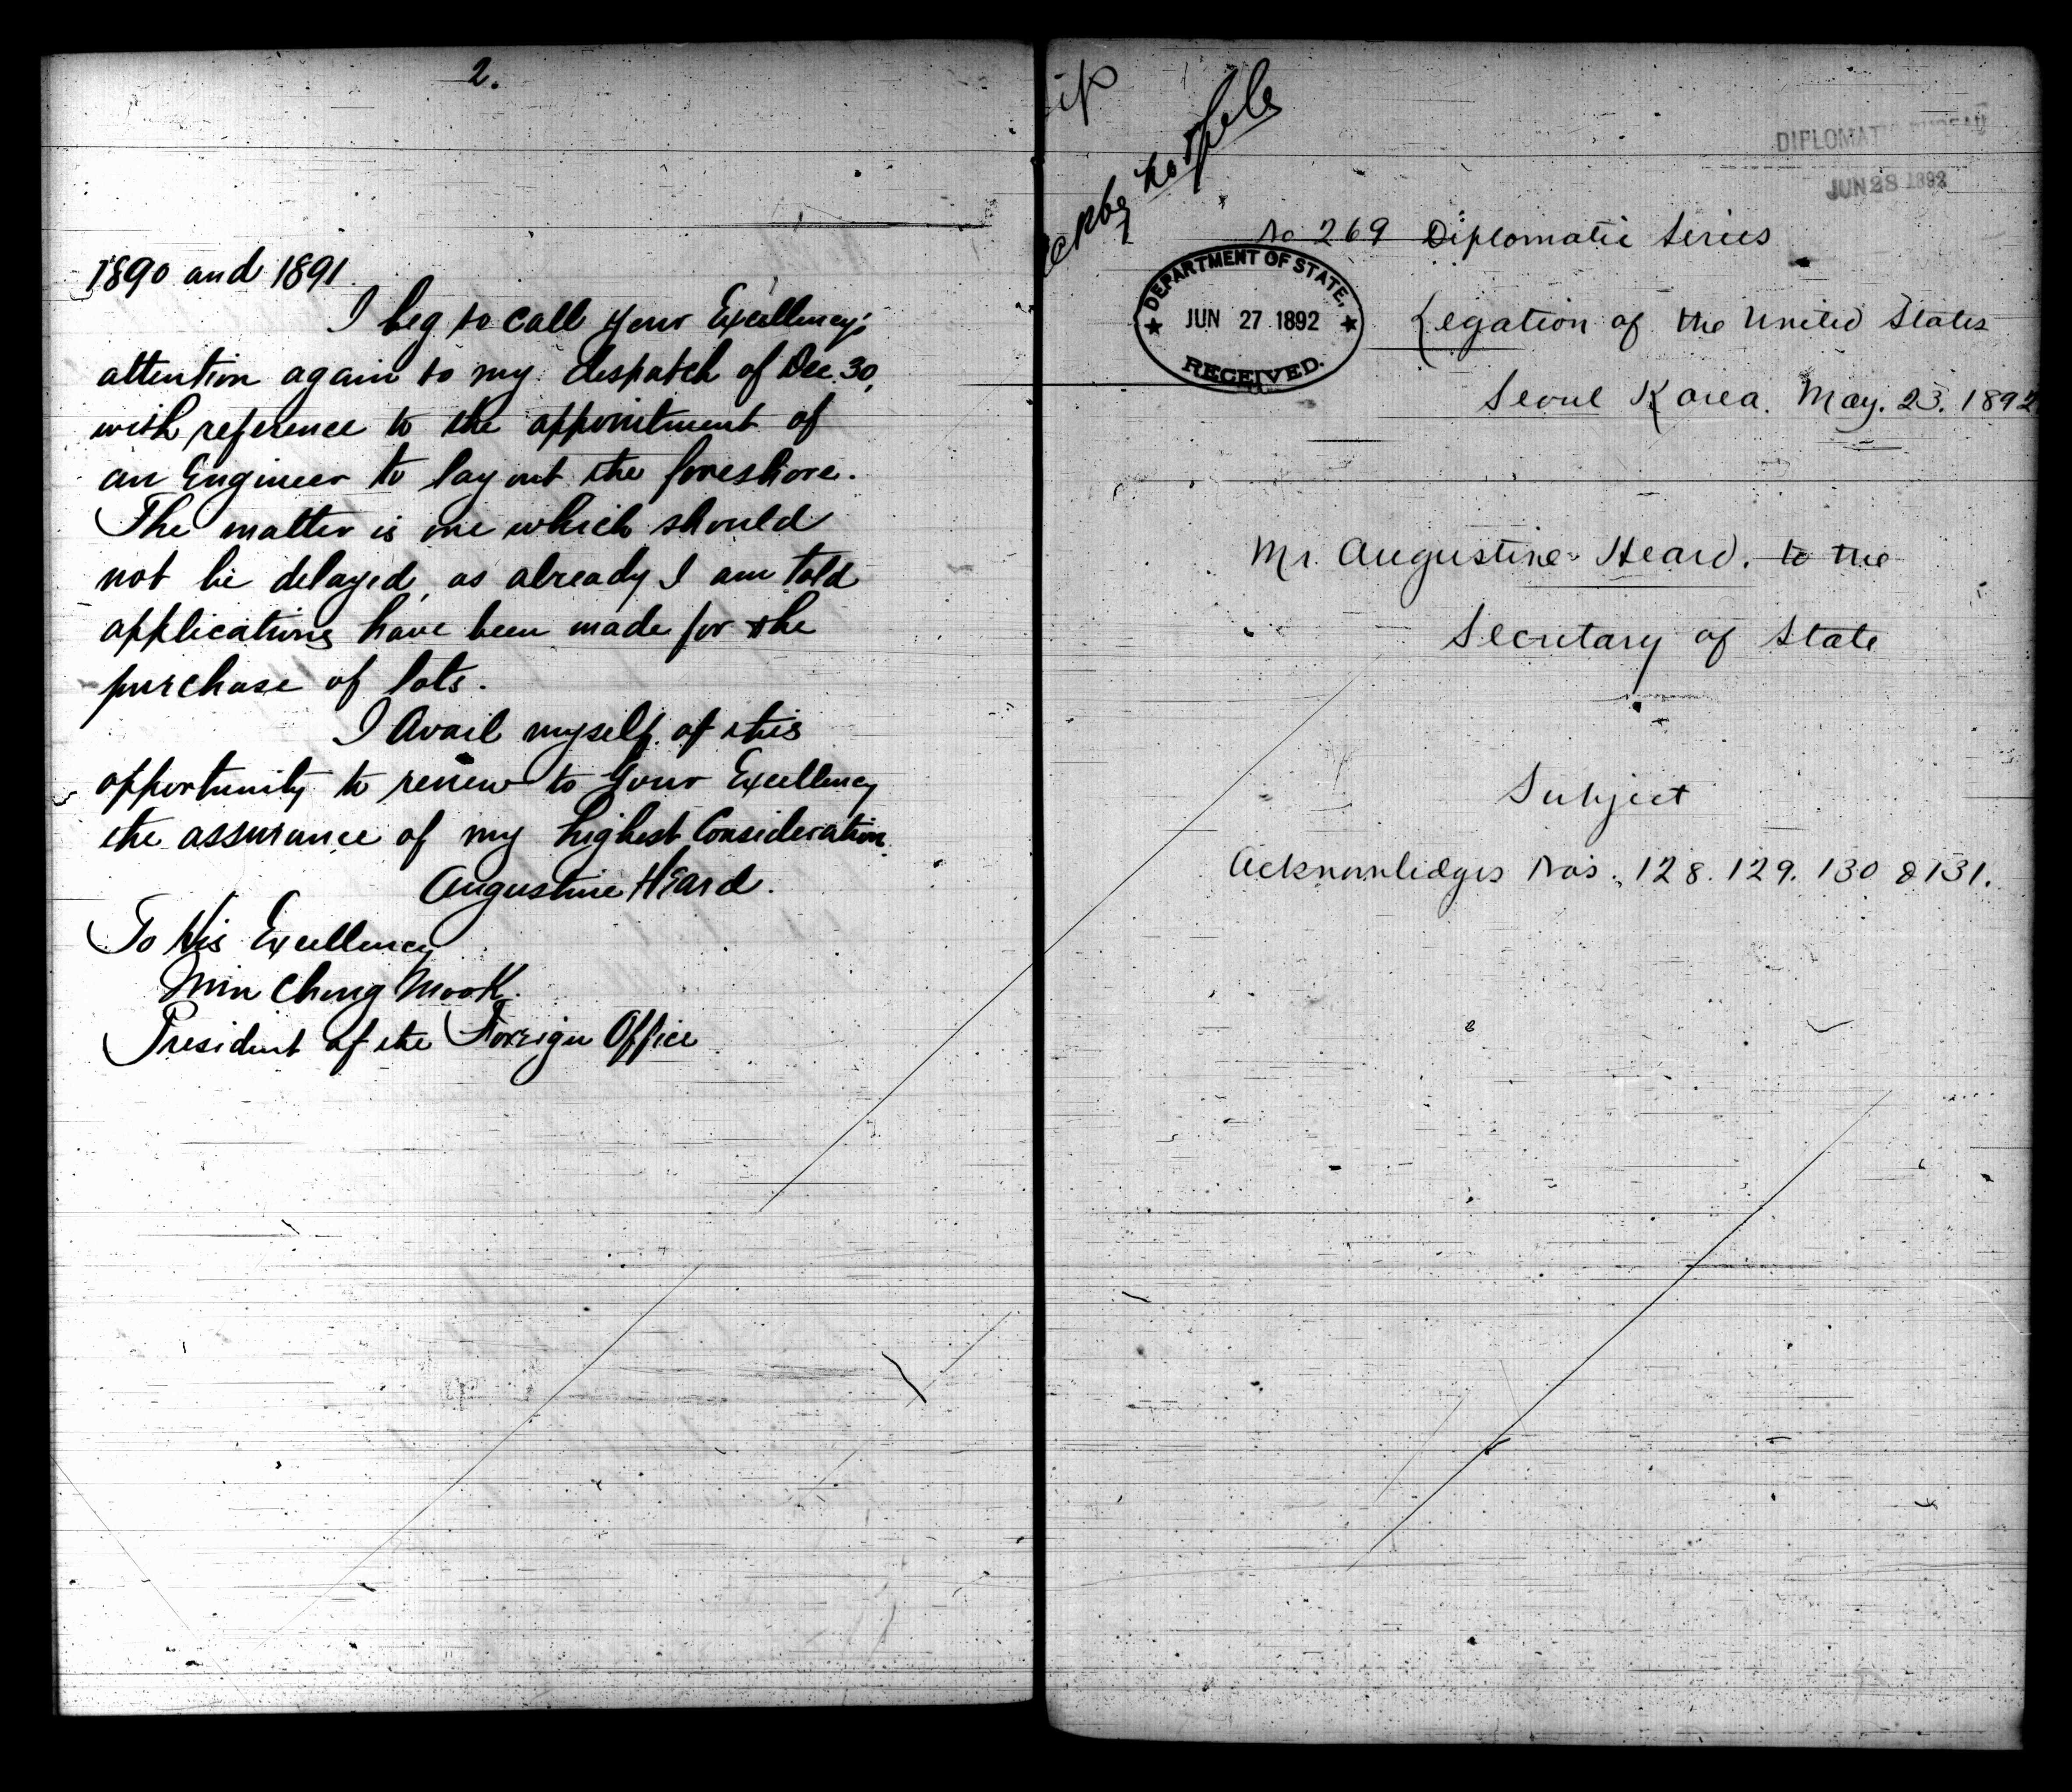 2.
1890 and 1891.
I beg to call Your Excellency's
attention again to my despatch of Dec. 30,
with reference to the appointment of
an Engineer to lay out the foreshore.
The matter is one which should
not be delayed, as already I am told
applications have been made for the
purchase of lots.
I Avail myself of this
opportunity to renew to Your Excellency
the assurance of my highest Consideration.
Augustine Heard.
To His Excellency
Min Chong Mook.
President of the Foreign Office
DIPLOMATIC BUREAU
JUN 28 1892
No 269 Diplomatic Series
DEPARTMENT OF STATE,
JUN 27 1892
RECEIVED.
Legation of the United States
Seoul Korea. May. 23. 1892
Mr. Augustine Heard. to the
Secretary of State
Subject
Acknowledges Nos. 128. 129. 130 & 131.